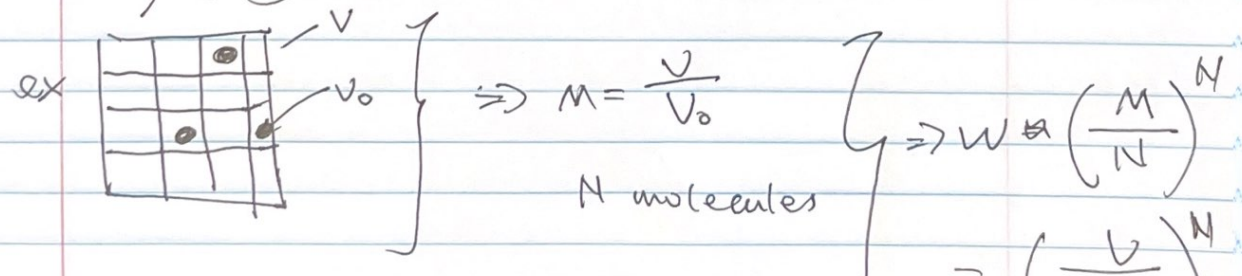 ex V V₀ ⇒ M = V/V₀
N molecules
⇒ W ≈ (M/N)^N
= (V
)^N